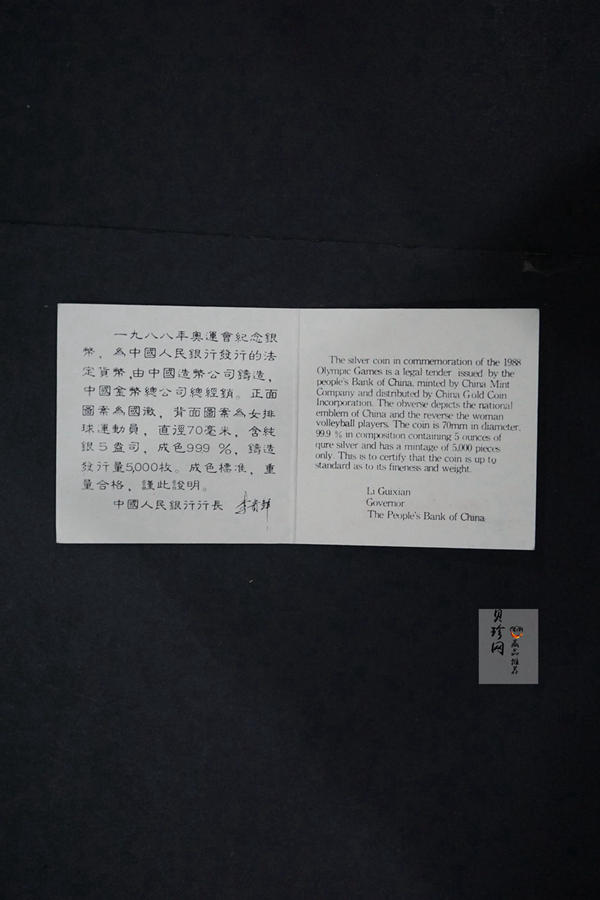 一九八八年奧運會紀念銀
幣，為中國人民銀行發行的法
定貨幣，由中國造幣公司鑄造，
中國金幣總公司總經銷。正面
圖案為國徽，背面圖案為女排
球運動員，直徑70毫米，含純
銀5盎司，成色999 %，鑄造
發行量5,000枚。成色標準，重
量合格，謹此證明。
中國人民銀行行長 李貴鮮
The silver coin in commemoration of the 1988
Olympic Games is a legal tender issued by the
people's Bank of China, minted by China Mint
Company and distributed by China Gold Coin
Incorporation. The obverse depicts the national
emblem of China and the reverse the woman
volleyball players. The coin is 70mm in diameter,
99.9 % in composition containing 5 ounces of
qure silver and has a mintage of 5,000 pieces
only. This is to certify that the coin is up to
standard as to its fineness and weight.
Li Guixian
Governor
The People's Bank of China
贝珍网
藏品推荐